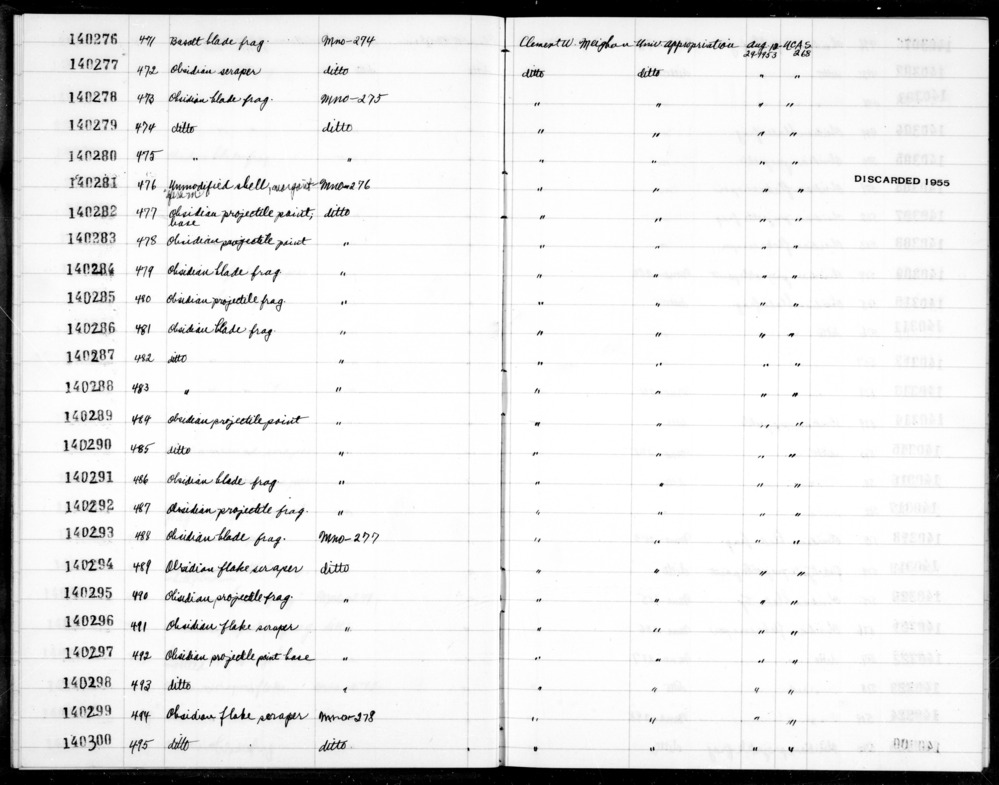 140276 471 Basalt blade frag. Mno-274 Clement W. Meighan Univ. Appropriation Aug. 18- UCAS
24-1953 268
140277 472 Obsidian scraper ditto ditto ditto " "
140278 473 Obsidian blade frag. Mno-275 " " " "
140279 474 ditto ditto " " " "
140280 475 " " " " " "
140281 476 Unmodified shell, Mno-276 " " " " DISCARDED 1955
140282 477 Obsidian projectile point, ditto " " " "
base
140283 478 Obsidian projectile point " " " " "
140284 479 Obsidian blade frag. " " " " "
140285 480 Obsidian projectile frag. " " " " "
140286 481 Obsidian blade frag. " " " " "
140287 482 ditto " " " " "
140288 483 " " " " " "
140289 484 Obsidian projectile point " " " " "
140290 485 ditto " " " " "
140291 486 Obsidian blade frag. " " " " "
140292 487 Obsidian projectile frag. " " " " "
140293 488 Obsidian blade frag. Mno-277 " " " "
140294 489 Obsidian flake scraper ditto " " " "
140295 490 Obsidian projectile frag. " " " " "
140296 491 Obsidian flake scraper " " " " "
140297 492 Obsidian projectile point base " " " " "
140298 493 ditto " " " " "
140299 494 Obsidian flake scraper Mno-278 " " " "
140300 495 ditto ditto " " " "